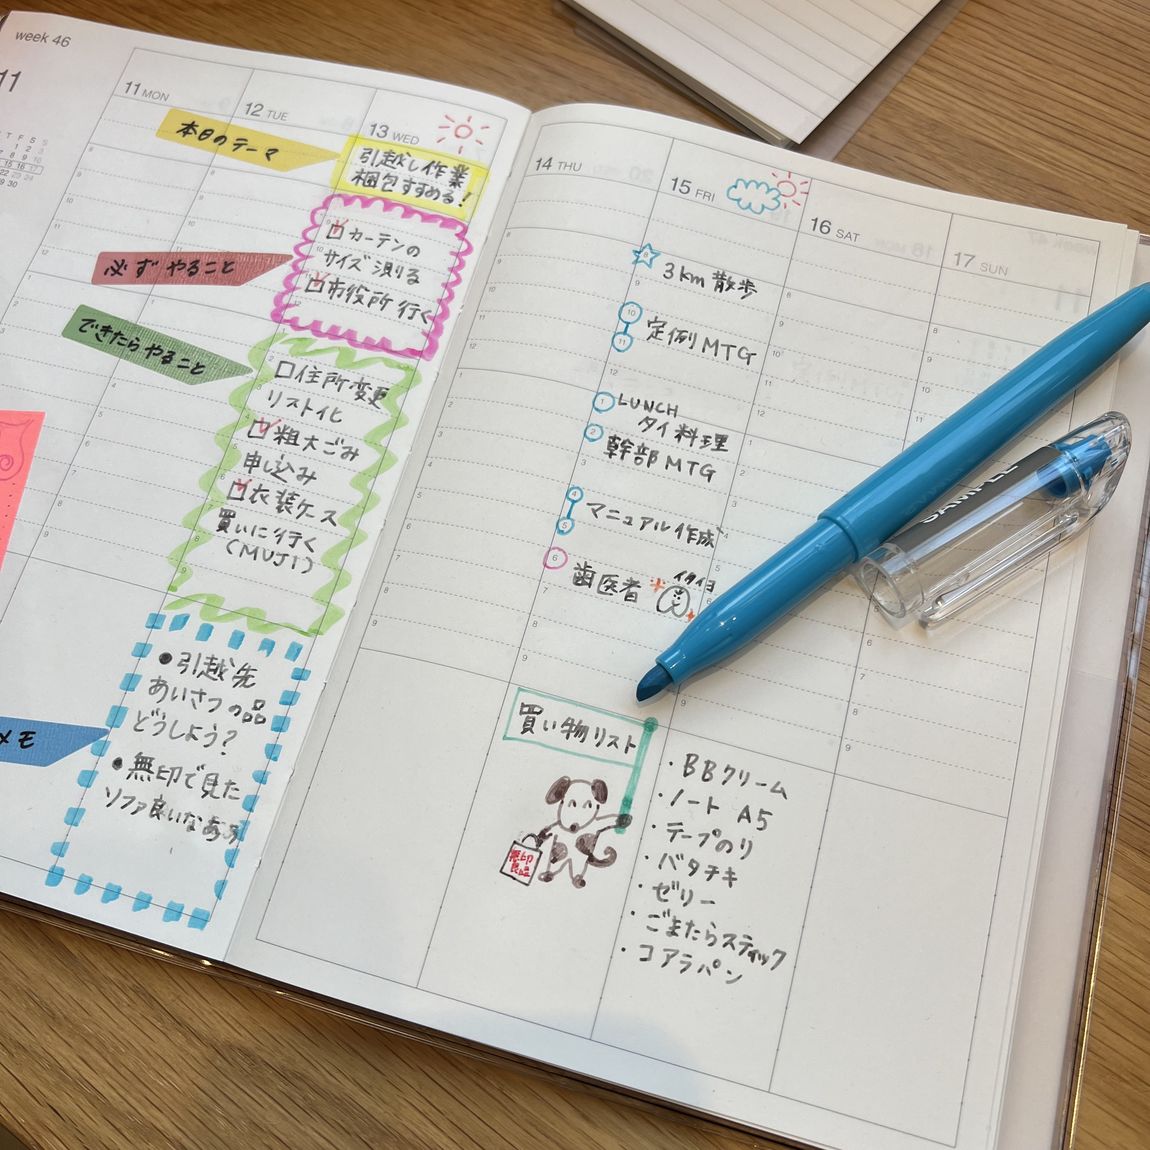 week 46
11
11 MON
12 TUE
13 WED
本日のテーマ
引越し作業
梱包すすめる!
必ずやること
カーテンの
サイズ測る
市役所行く
できたらやること
住所変更
リスト化
粗大ごみ
申し込み
衣装ケース
買いに行く
(MUJI)
メモ
●引越先
あいさつの品
どうしよう?
●無印で見た
ソファ良いなあ
14 THU
15 FRI
16 SAT
17 SUN
8
3km 散歩
10
11
定例MTG
1
LUNCH
タイ料理
2
幹部MTG
4
5
マニュアル作成
6
歯医者
イタイヨ
買い物リスト
無印
良品
・BBクリーム
・ノート A5
・テープのり
・バタチキ
・ゼリー
・ごまたらスティック
・コアラパン
SAMPLE